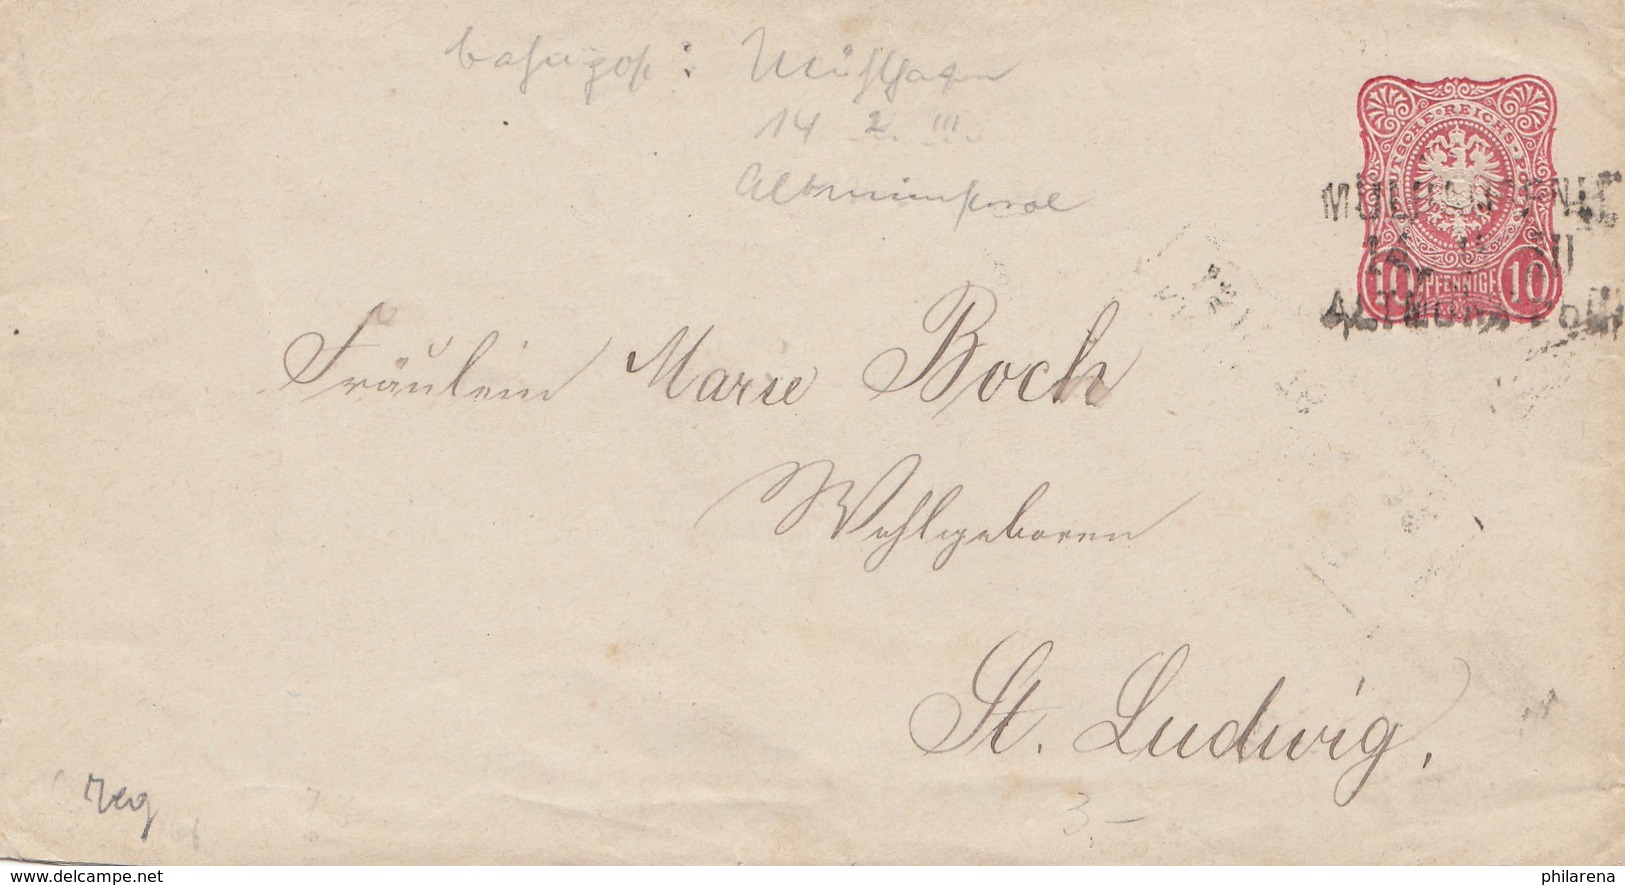 Bahnpost: Mülhausen
14 2. III.
Altmünsterol
DEUTSCHE REICHS-POST
10 PFENNIGE 10
Fräulein Marie Boch
Wohlgeboren
St. Ludwig.
3.-
www.delcampe.net
philarena